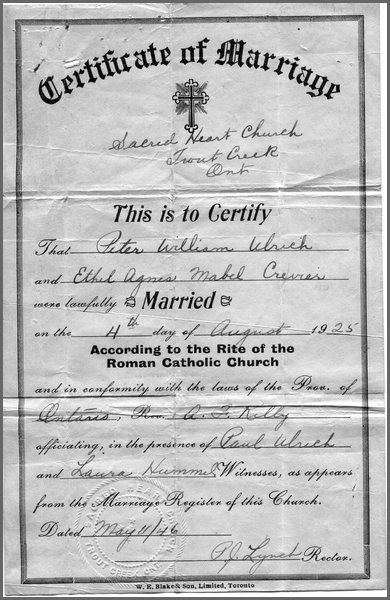 Certificate of Marriage
Sacred Heart Church
Trout Creek
Ont
This is to Certify
That Peter William Ulrich
and Ethel Agnes Mabel Crevier
were lawfully Married
on the 4th day of August 1925
According to the Rite of the
Roman Catholic Church
and in conformity with the laws of the Prov. of
Ontario, Rev. A. F. Kelly
officiating, in the presence of Paul Ulrich
and Laura Hummel Witnesses, as appears
from the Marriage Register of this Church.
Dated May 11/46
P J Lynch Rector.
TROUT CREEK
W. E. Blake & Son, Limited, Toronto